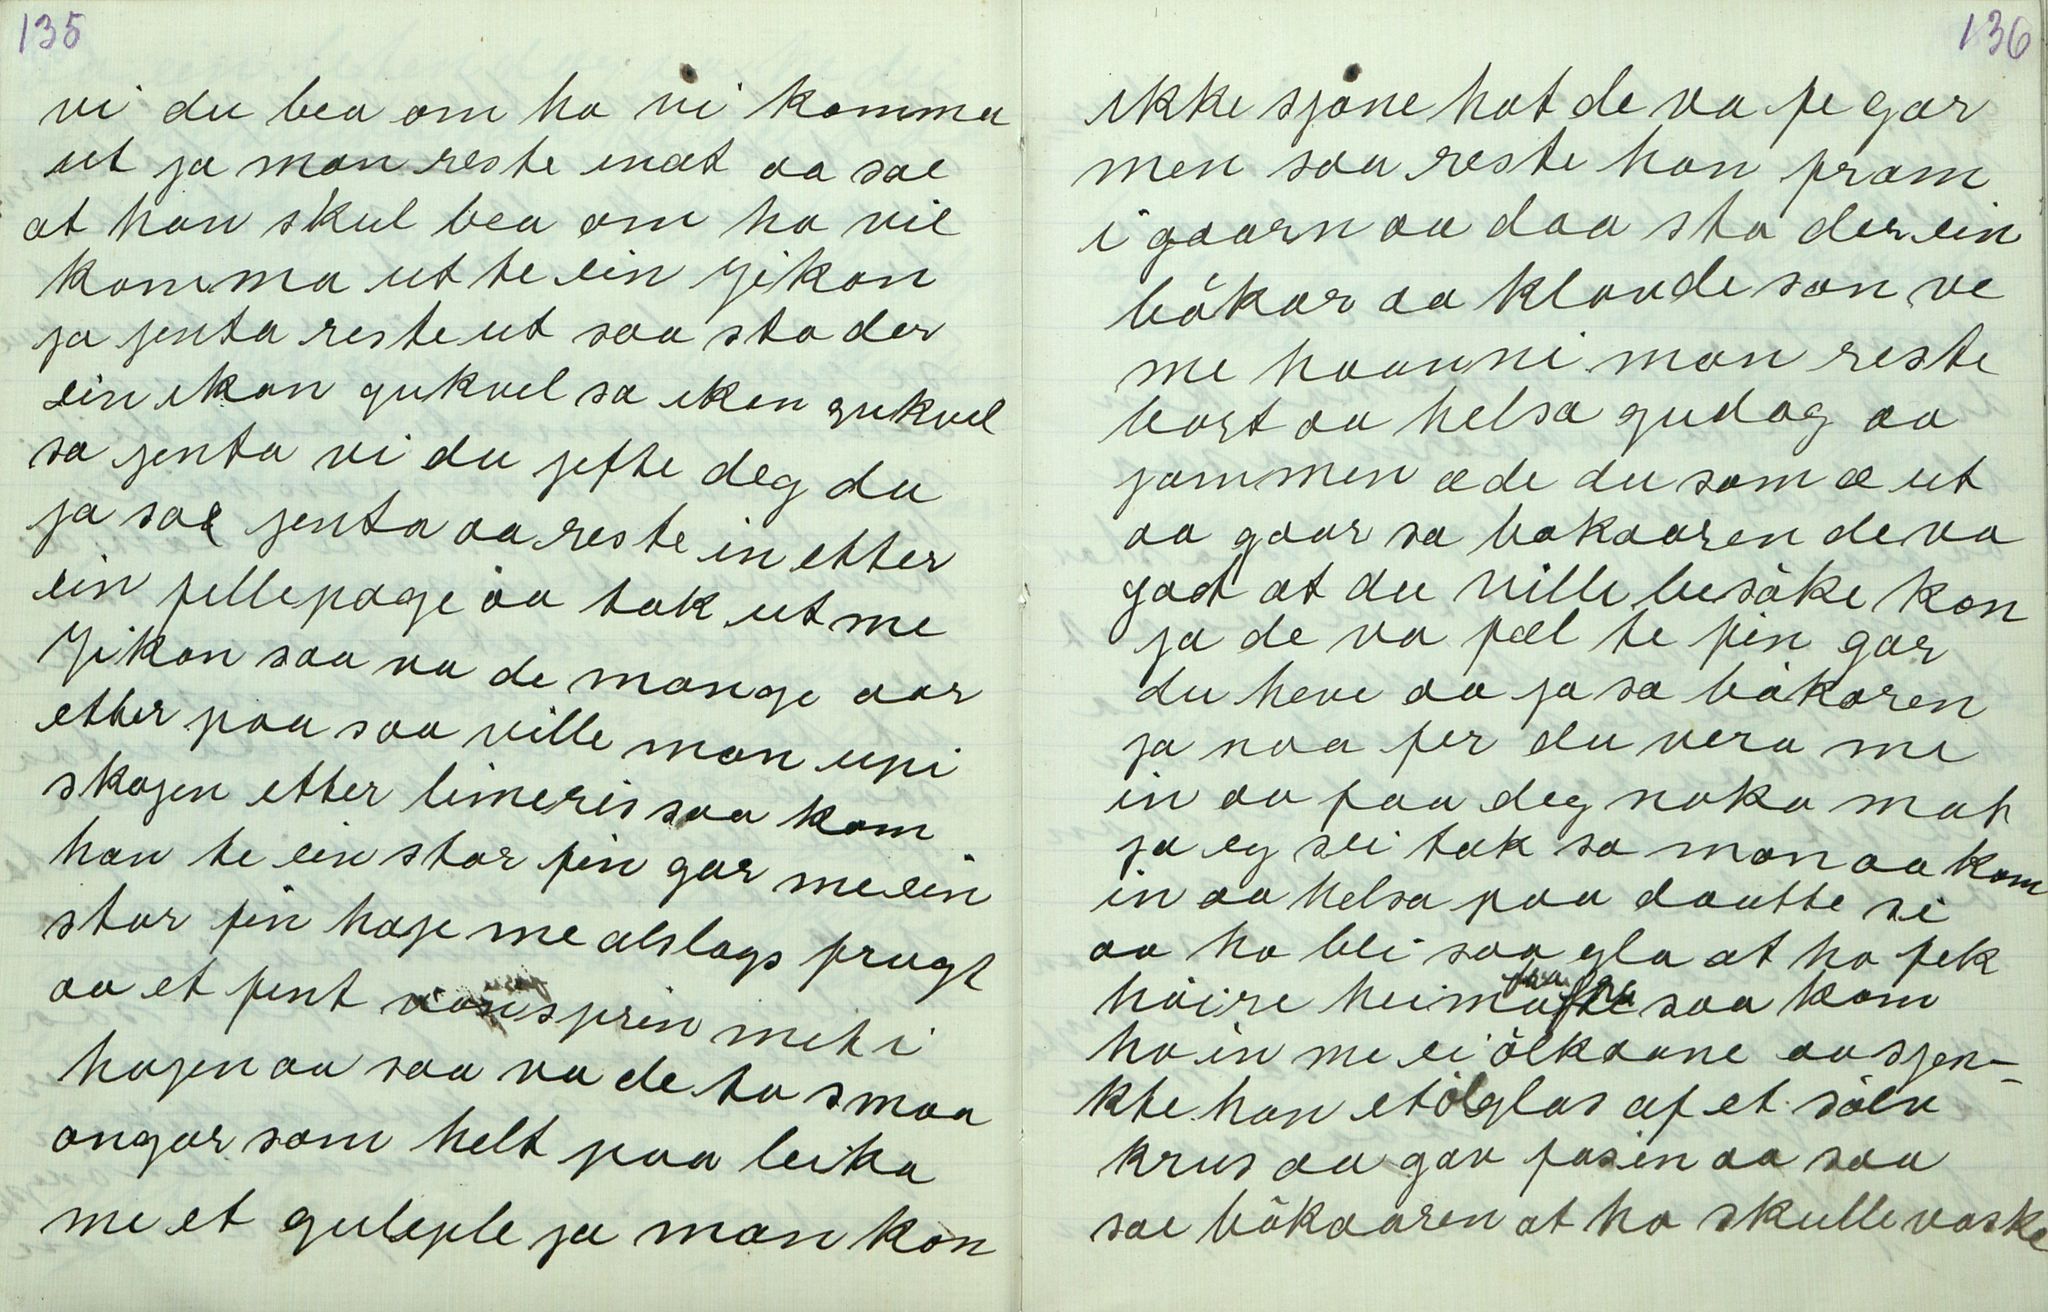 135
vi du bea om ho vi komma
ut ja man reste inat aa sae
at han skul bea om ho vil
komma ut te ein Jikan
ja jenta reste ut saa sto der
ein ikon gukvel sa iken gukvel
sa jenta vi du jefte deg du
ja sae jenta aa reste in etter
ein fillepage aa tok ut me
Jikon saa va de mange aar
etter paa saa ville man upi
skogen etter limeris saa kom
han te ein stor fin gar me ein
stor fin haje me alslags frugt
aa et fint sprin mit i
hagen aa saa va de to smaa
ongar som helt paa leika
me et guleple ja man kon
136
ikke sjøne hot de va fe gar
men saa reste han fram
i gaarn aa daa sto der ein
båkar aa klaude san ve
me haanni man reste
bort aa helsa gudag aa
jammen æde du som æ ut
aa gaar sa bakaaren de va
got at du ville besøke kon
ja de va fæl te fin gar
du heve aa ja sa båkaren
ja naa fer du vera me
in aa faa deg noko mat
ja eg sei tak sa man aa kom
in aa helsa paa daatte si
aa ho bli saa gla at ho fek
høire heima fra saa kom
ho in me ei ølkanne aa sjen-
kte han et ølglas af et sølv
krus aa gav fasin aa saa
sae båkaaren at ho skulle vaske